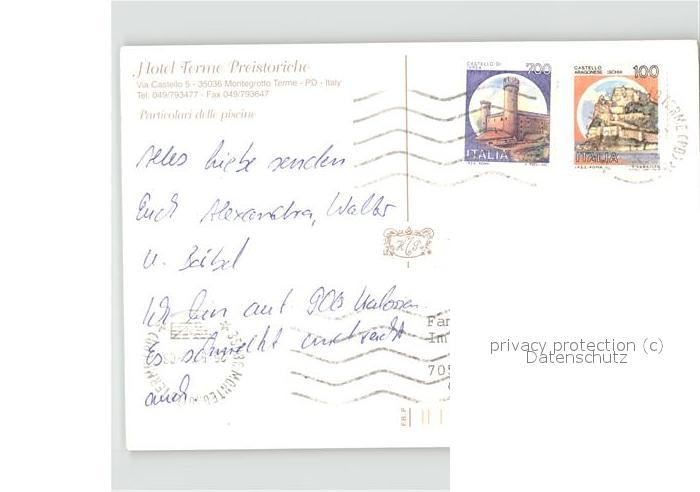 Hotel Terme Preistoriche
Via Castello 5 - 35036 Montegrotto Terme - PD - Italy
Tel. 049/793477 - Fax 049/793647
Particolari delle piscine
CASTELLO DI IVREA
700
ITALIA
CASTELLO ARAGONESE ISCHIA
100
ITALIA
Alles liebe senden
Euch Alexandra, Walter
u. Bärbel
Ich bin auf 900 Kalorien.
Es schmeckt
auch
Fam
Im
705
privacy protection (c)
Datenschutz